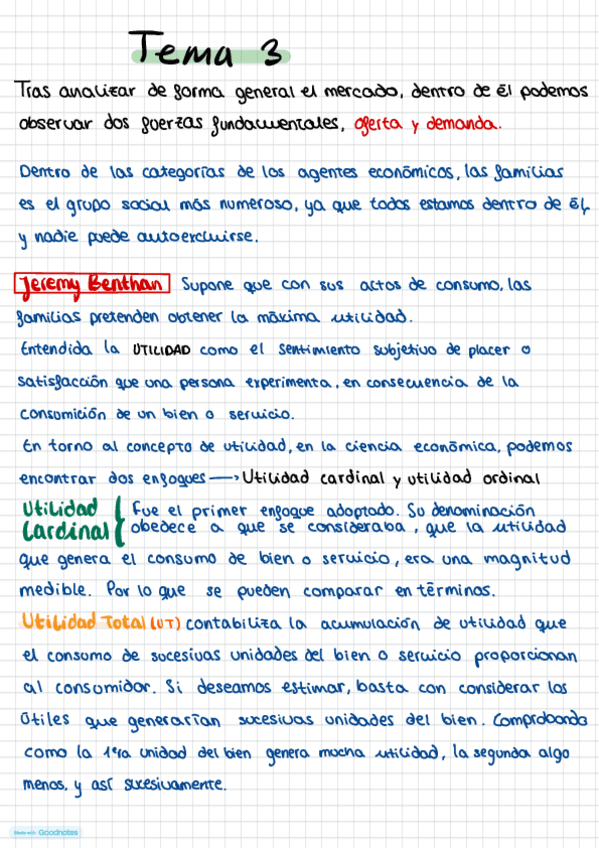 Tema 3
Tras analizar de forma general el mercado, dentro de él podemos
observar dos fuerzas fundamentales, oferta y demanda.
Dentro de las categorías de los agentes económicos, las familias
es el grupo social más numeroso, ya que todos estamos dentro de él,
y nadie puede autoexcluirse.
Jeremy Benthan Supone que con sus actos de consumo, las
familias pretenden obtener la máxima utilidad.
Entendida la UTILIDAD como el sentimiento subjetivo de placer o
satisfacción que una persona experimenta, en consecuencia de la
consumición de un bien o servicio.
En torno al concepto de utilidad, en la ciencia económica, podemos
encontrar dos enfoques → Utilidad cardinal y utilidad ordinal
Utilidad { Fue el primer enfoque adoptado. Su denominación
Cardinal { obedece a que se consideraba, que la utilidad
que genera el consumo de bien o servicio, era una magnitud
medible. Por lo que se pueden comparar en términos.
Utilidad Total (UT) contabiliza la acumulación de utilidad que
el consumo de sucesivas unidades del bien o servicio proporcionan
al consumidor. Si deseamos estimar, basta con considerar los
útiles que generarían sucesivas unidades del bien. Comprobando
como la 1era unidad del bien genera mucha utilidad, la segunda algo
menos, y así sucesivamente.
Made with Goodnotes